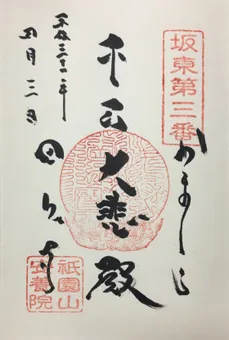 坂東第三番
かまくら
千手大悲殿
平成三十一年
四月
田代寺
祇園山
安養院